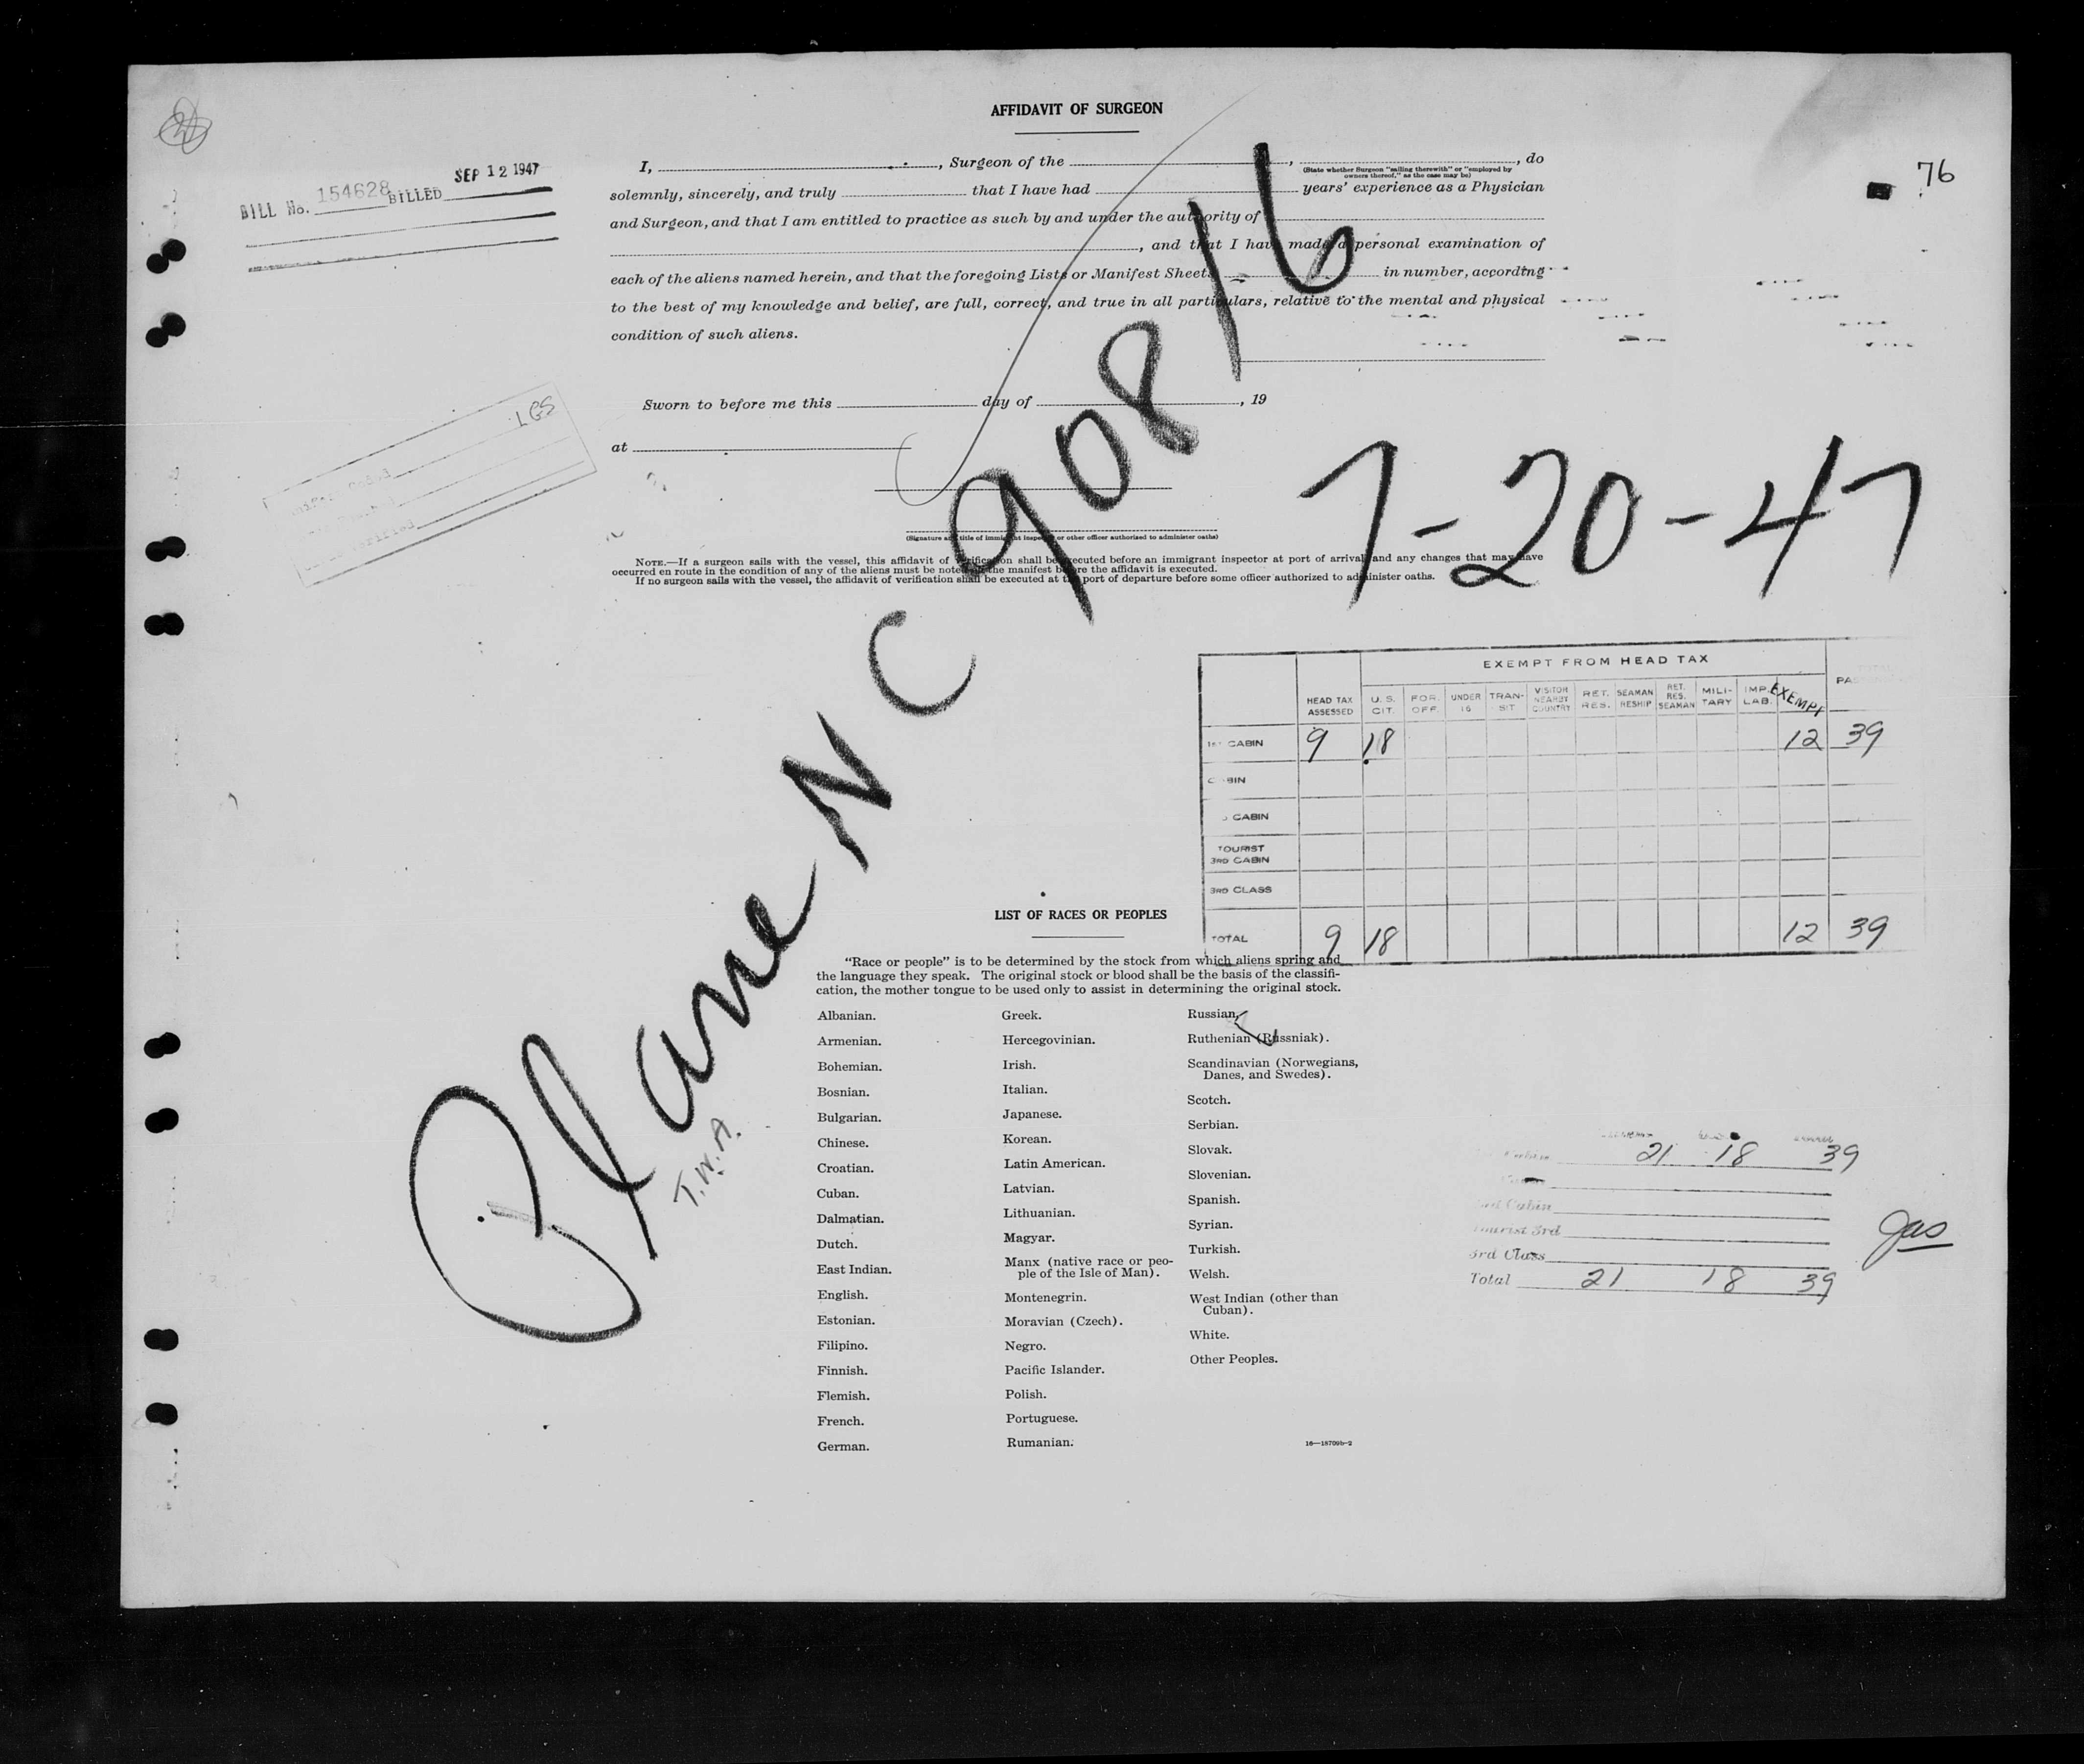 AFFIDAVIT OF SURGEON
76
SEP 12 1947
BILL No. 154628 BILLED
I, , Surgeon of the , , do
(State whether Surgeon "sailing therewith" or "employed by
owners thereof," as the case may be)
solemnly, sincerely, and truly that I have had years' experience as a Physician
and Surgeon, and that I am entitled to practice as such by and under the authority of
, and that I have made a personal examination of
each of the aliens named herein, and that the foregoing Lists or Manifest Sheets, in number, according
to the best of my knowledge and belief, are full, correct, and true in all particulars, relative to the mental and physical
condition of such aliens.
Sworn to before me this day of , 19
at
IGS
(Signature and title of immigrant inspector or other officer authorized to administer oaths)
NOTE.—If a surgeon sails with the vessel, this affidavit of verification shall be executed before an immigrant inspector at port of arrival, and any changes that may have
occurred en route in the condition of any of the aliens must be noted on the manifest before the affidavit is executed.
If no surgeon sails with the vessel, the affidavit of verification shall be executed at the port of departure before some officer authorized to administer oaths.
Plane NC 90816
T.W.A.
7-20-47
EXEMPT FROM HEAD TAX
HEAD TAX ASSESSED U. S. CIT. FOR. OFF. UNDER 16 TRAN-SIT VISITOR NEARBY COUNTRY RET. RES. SEAMAN RESHIP RET. RES. SEAMAN MILI-TARY IMP. LAB. EXEMPT
1st CABIN 9 18 12 39
CABIN
CABIN
TOURIST
3RD CABIN
3RD CLASS
TOTAL 9 18 12 39
LIST OF RACES OR PEOPLES
"Race or people" is to be determined by the stock from which aliens spring and
the language they speak. The original stock or blood shall be the basis of the classifi-
cation, the mother tongue to be used only to assist in determining the original stock.
Albanian.
Armenian.
Bohemian.
Bosnian.
Bulgarian.
Chinese.
Croatian.
Cuban.
Dalmatian.
Dutch.
East Indian.
English.
Estonian.
Filipino.
Finnish.
Flemish.
French.
German.
Greek.
Hercegovinian.
Irish.
Italian.
Japanese.
Korean.
Latin American.
Latvian.
Lithuanian.
Magyar.
Manx (native race or peo-
ple of the Isle of Man).
Montenegrin.
Moravian (Czech).
Negro.
Pacific Islander.
Polish.
Portuguese.
Rumanian.
Russian.
Ruthenian (Russniak).
Scandinavian (Norwegians,
Danes, and Swedes).
Scotch.
Serbian.
Slovak.
Slovenian.
Spanish.
Syrian.
Turkish.
Welsh.
West Indian (other than
Cuban).
White.
Other Peoples.
16—18709b-2
Cabin 21 18 39
Cabin
Tourist 3rd
3rd Class
Total 21 18 39